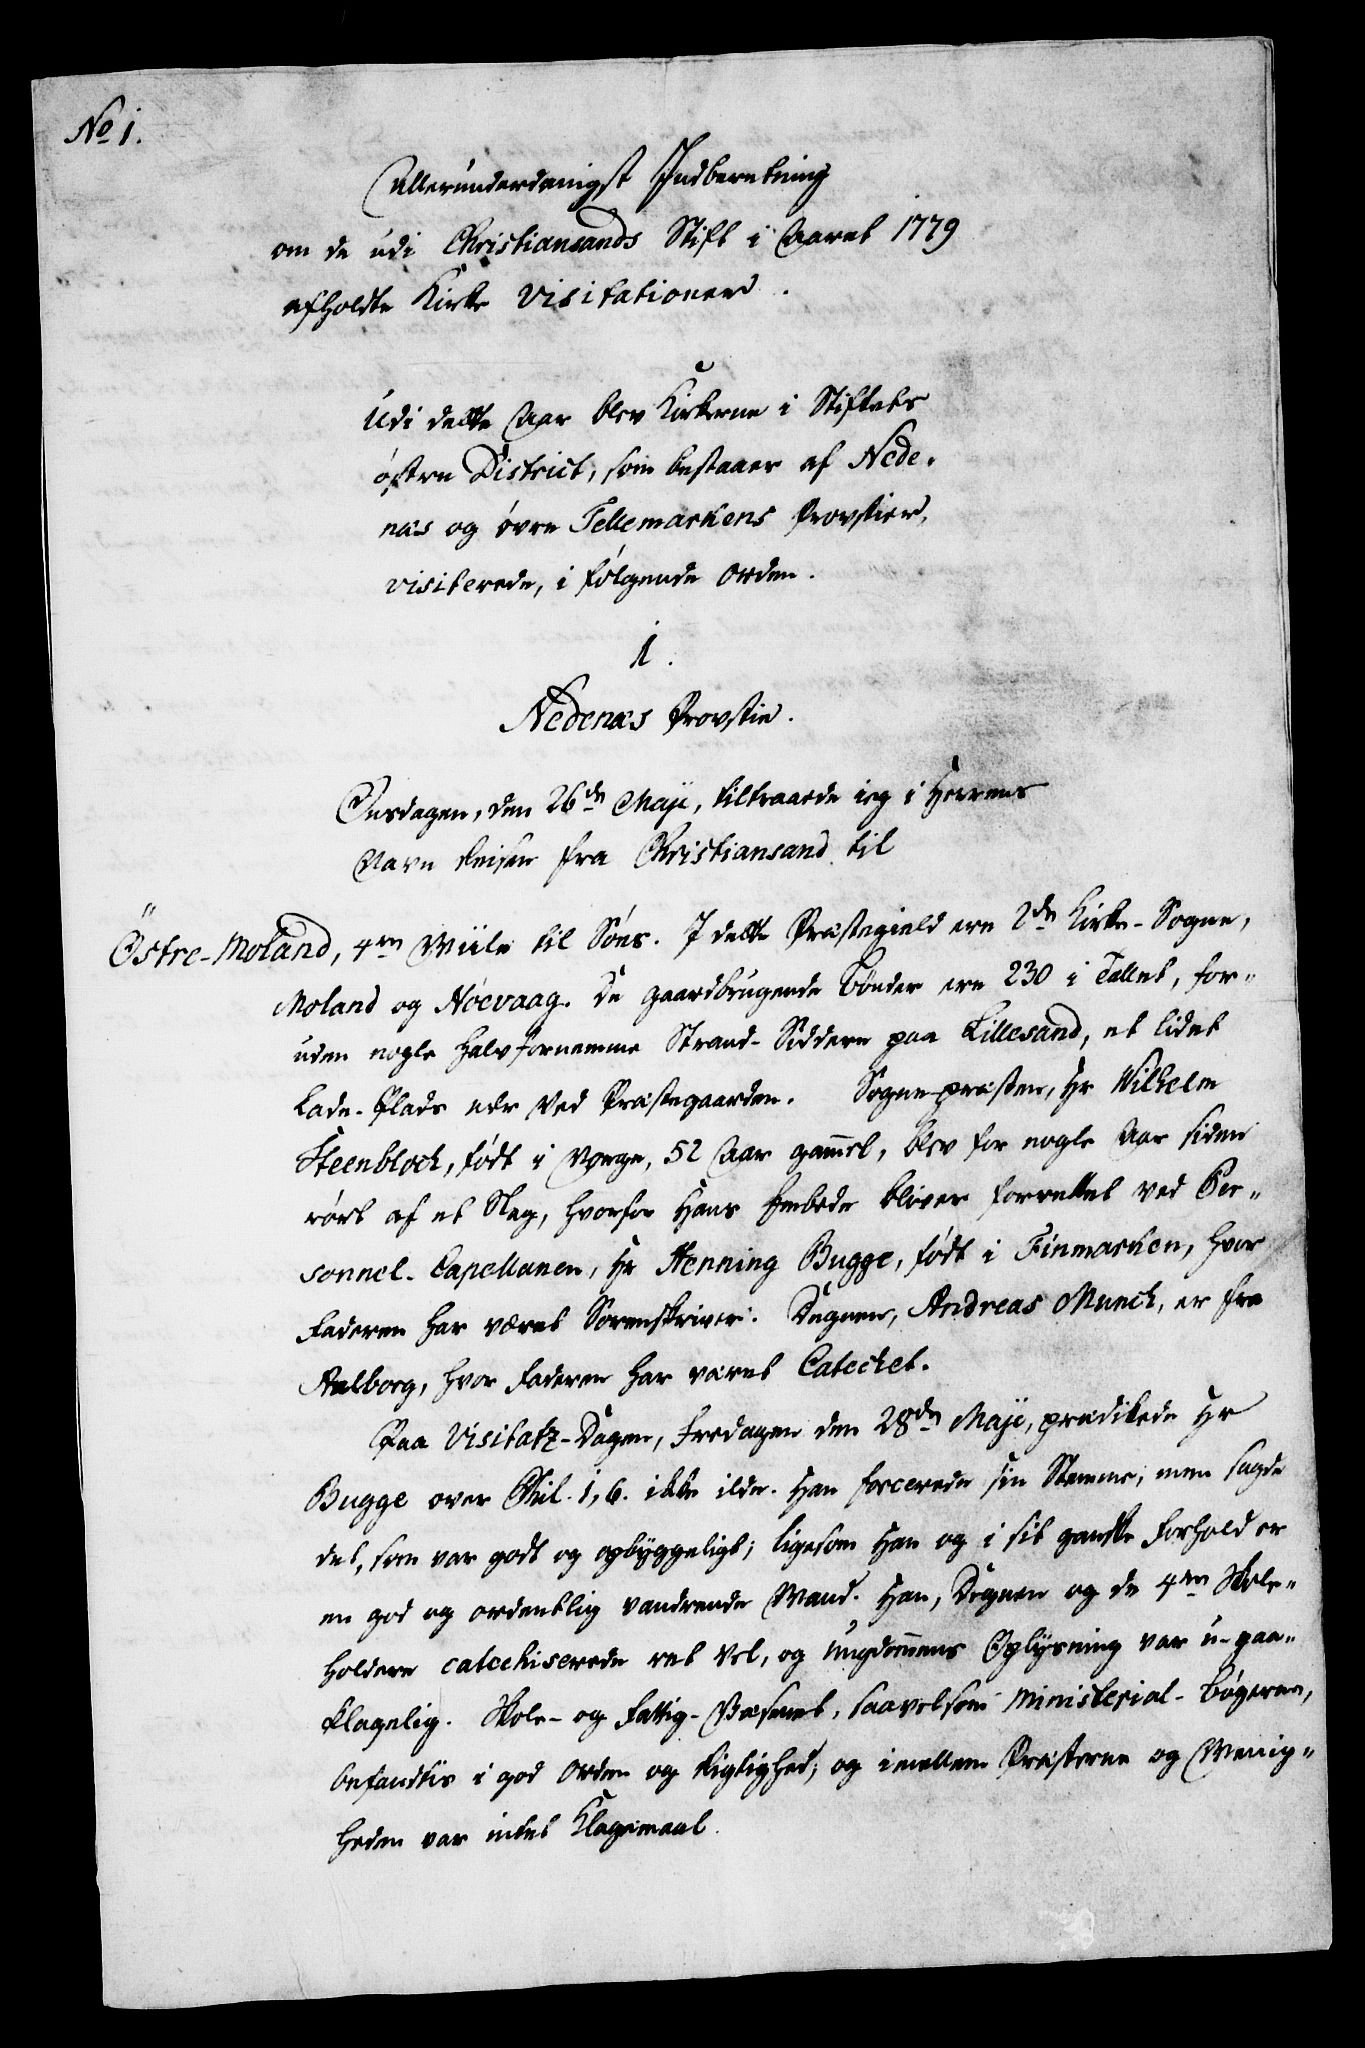 No 1.
Allerunderdanigst Indberetning
om de udi Christiansands Stift i Aaret 1779
afholdte Kirke Visitationer.
Udi dette Aar blev Kirkerne i Stiftets
östre District, som bestaaer af Nede-
næs og övre Tellemarkens Provstier,
visiterede, i fölgende Orden.
1.
Nedenæs Provstie.
Onsdagen, den 26de Maji, tiltraadde ieg i Herrens
Navn Reisen fra Christiansand til
Östre-Moland, 4re Miile til Söes. I dette Præstegield ere 2de Kirke-Sogne,
Moland og Höevaag. De gaardbrugende Bönder ere 230 i Tallet, for-
uden nogle halvfornemme Strand-Siddere paa Lillesand, et lidet
Lade-Plads nær ved Præstegaarden. Sognepræsten, Hr Wilhelm
Steenbloch, födt i Norge, 52 Aar gammel, blev for nogle Aar siden
rört af et Slag, hvorfor Hans Embede bliver forrettet ved Per-
sonnel-Capellanen, Hr Henning Bugge, födt i Finmarken, hvor
Faderen har været Sorenskriver. Degnen, Andreas Munch, er fra
Aalborg, hvor Faderen har været Catechet.
Paa Visitatz-Dagen, Fredagen den 28de Maji, prædikede Hr
Bugge over Phil. 1, 6. ikke ilde. Han forcerede sin Stemme, men sagde
det, som var godt og opbyggeligt; ligesom Han og i sit ganske Forhold er
en god og ordentlig vandrende Mand. Han, Degnen og de 4re Skole-
holdere catechiserede ret vel, og Ungdommens Oplysning var u-paa-
klagelig. Skole- og Fattig-Væsenet, saavelsom Ministerial-Bögerne,
befandtes i god Orden og Rigtighed; og imellem Præsterne og Menig-
heden var intet Klagemaal.